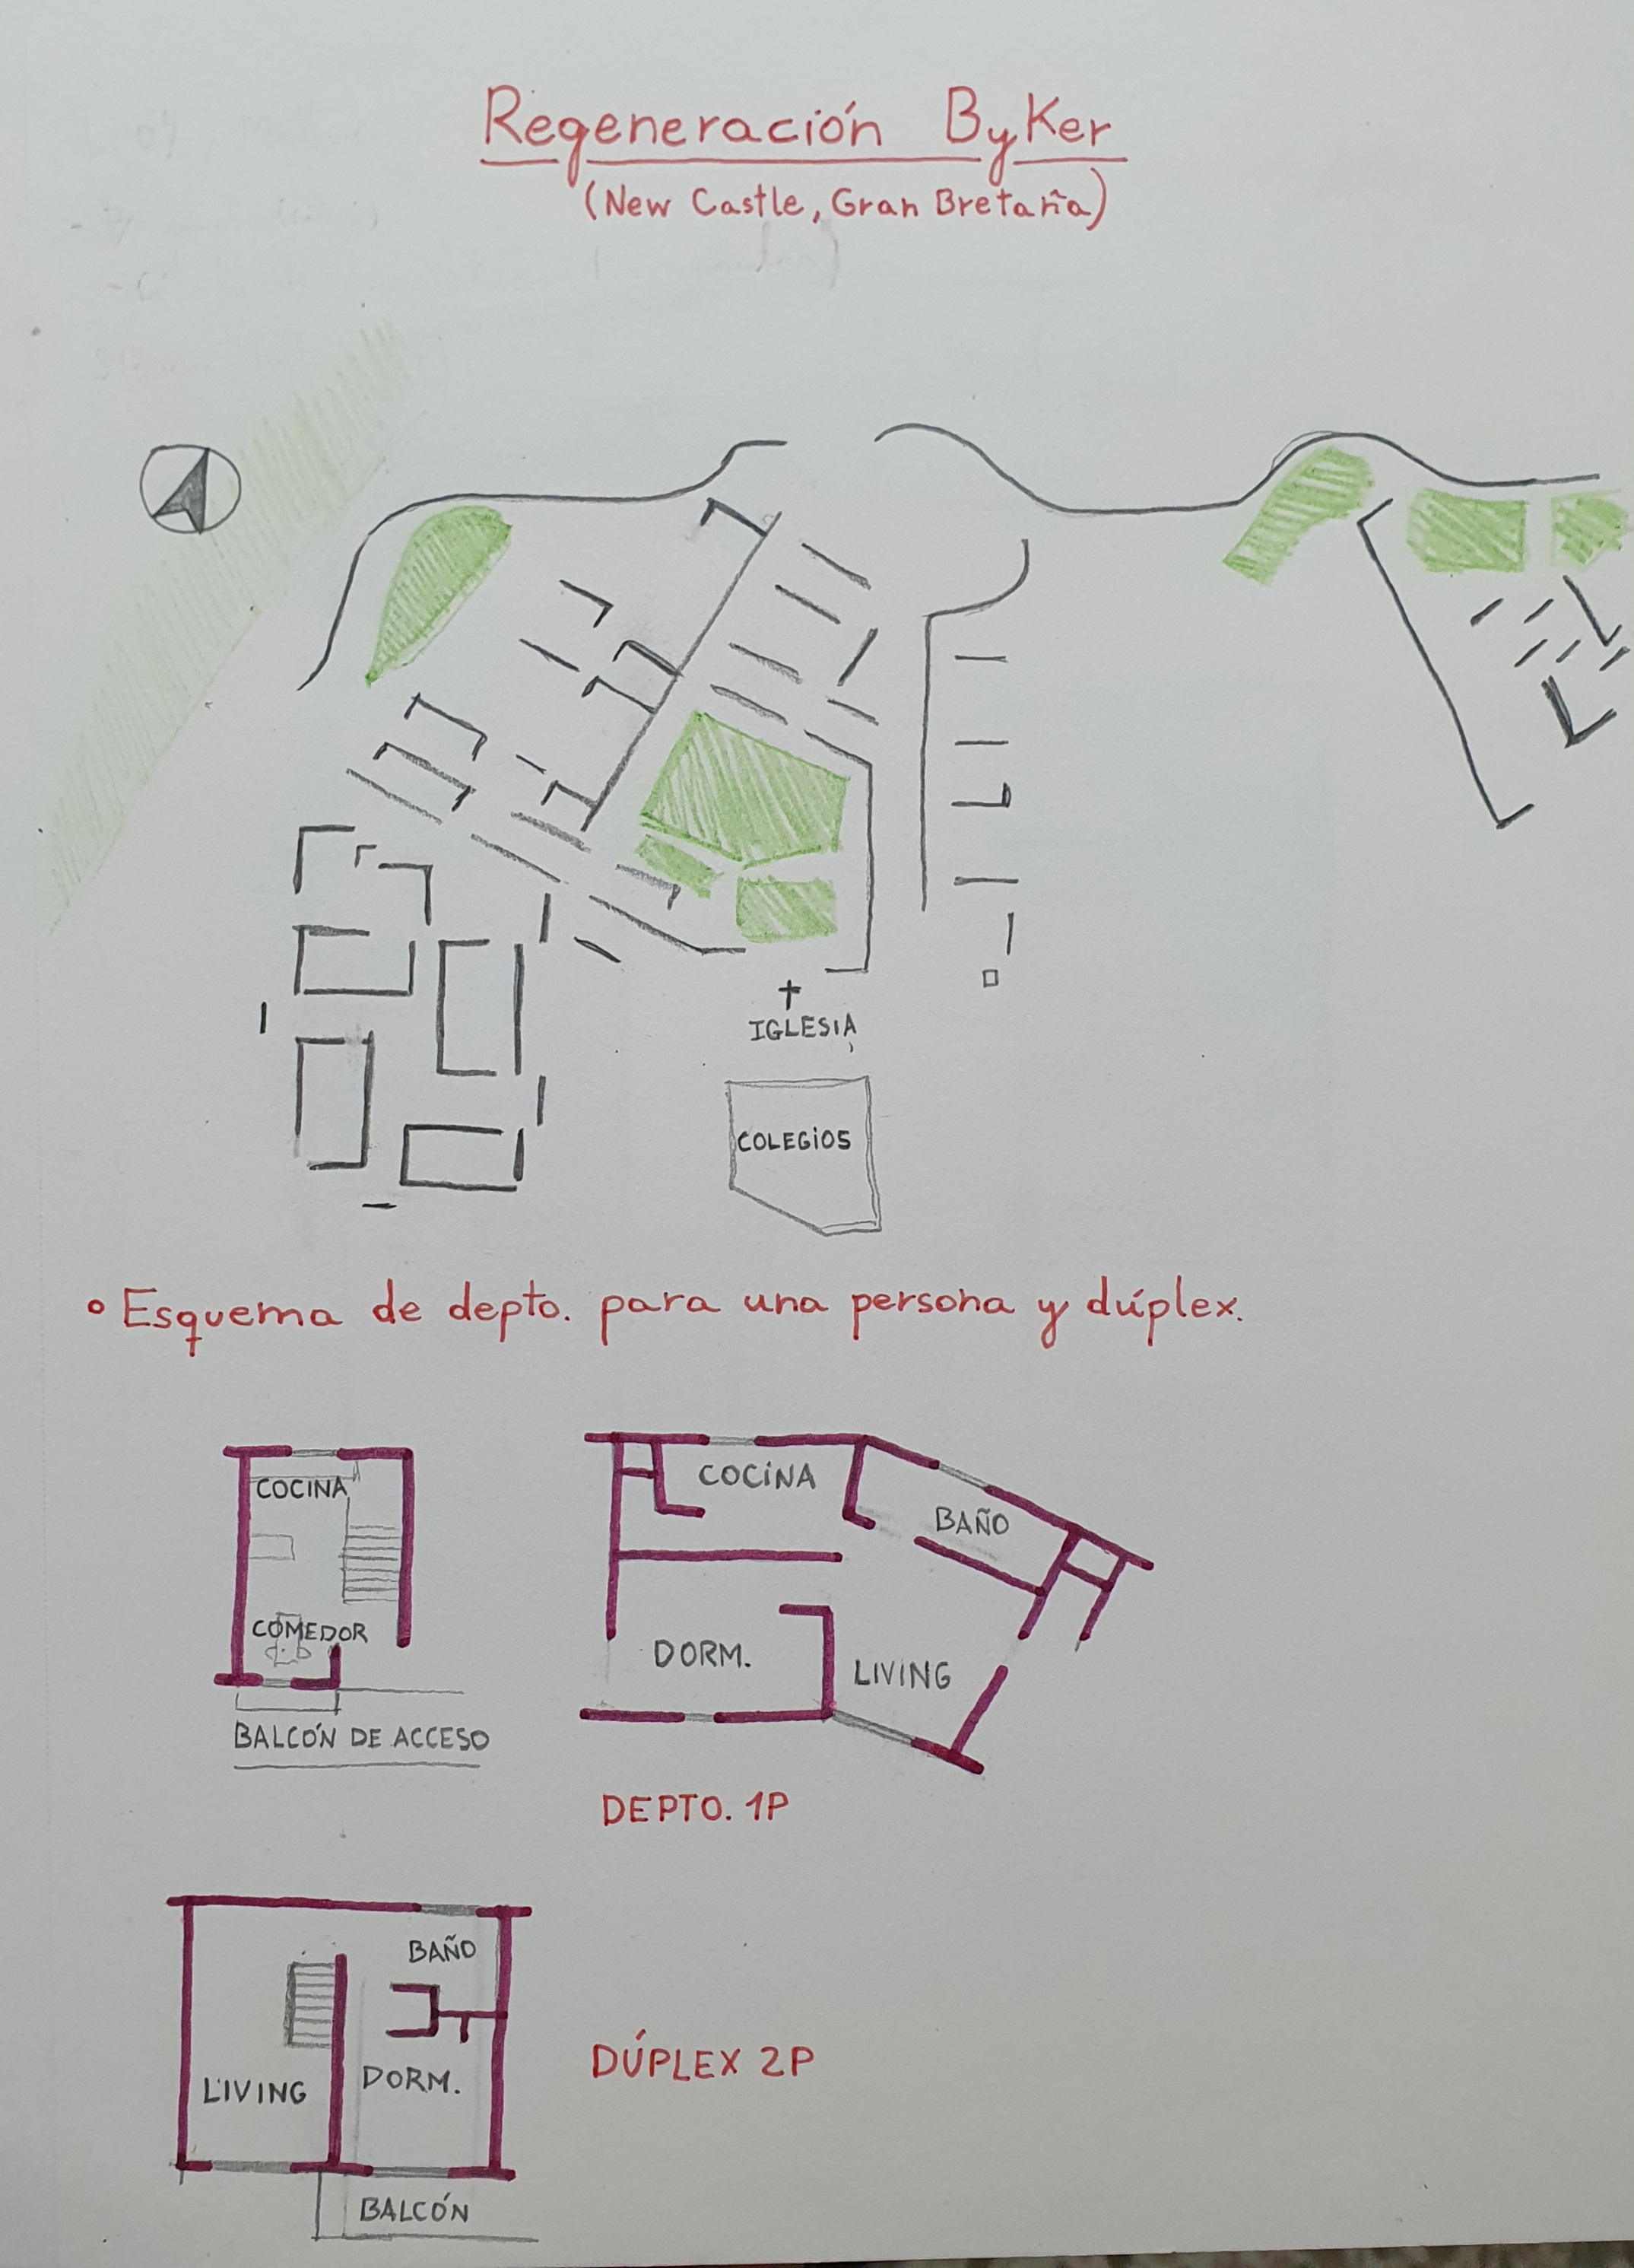 Regeneración Byker
(New Castle, Gran Bretaña)
IGLESIA
COLEGIOS
Esquema de depto. para una persona y dúplex.
COCINA
COMEDOR
BALCÓN DE ACCESO
COCINA
BAÑO
DORM.
LIVING
DEPTO. 1P
BAÑO
LIVING
DORM.
BALCÓN
DÚPLEX 2P